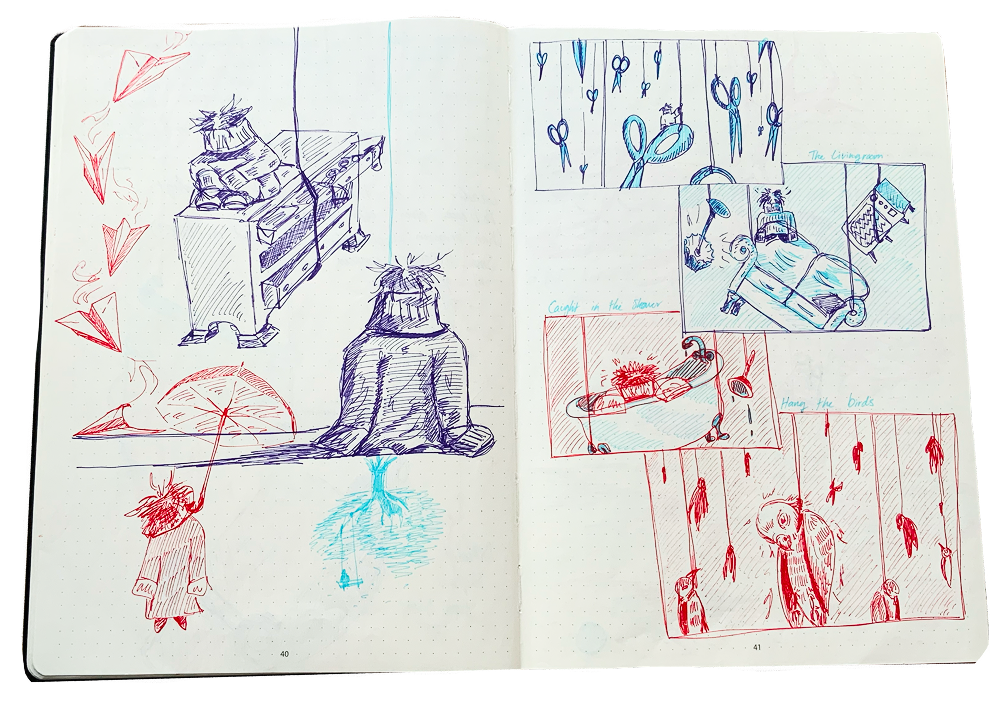 The Livingroom
Caught in the Shower
Hang the birds
40
41